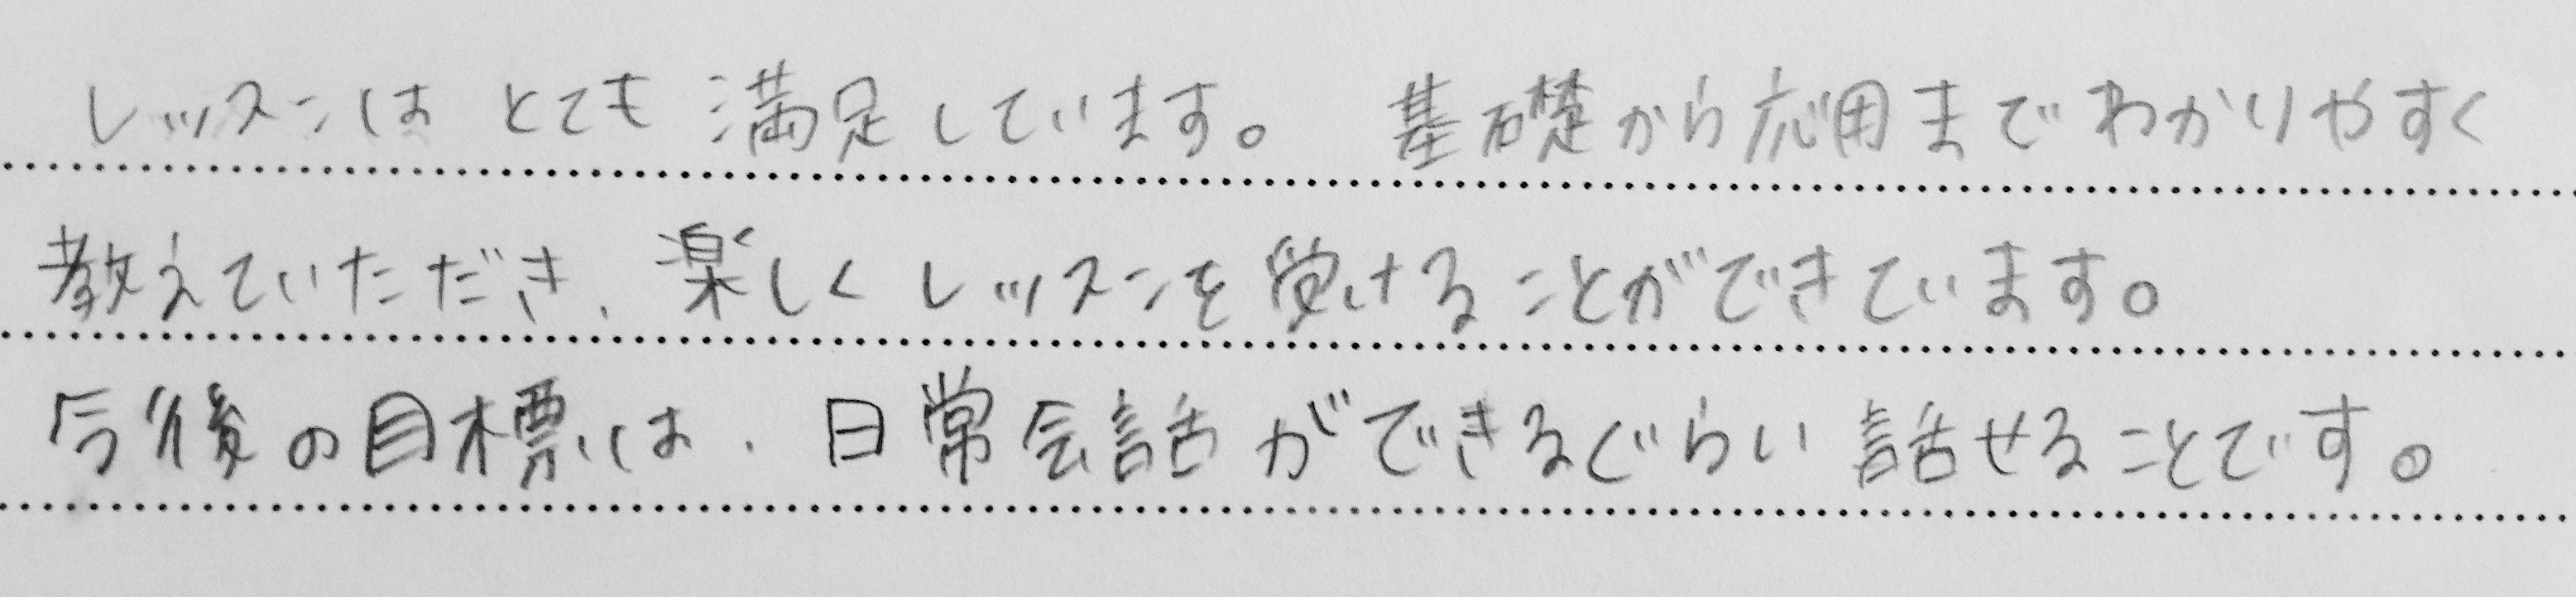 レッスンは とても 満足しています。 基礎から応用まで わかりやすく
教えていただき、楽しく レッスンを受けることができています。
今後の目標は、日常会話ができるぐらい 話せることです。